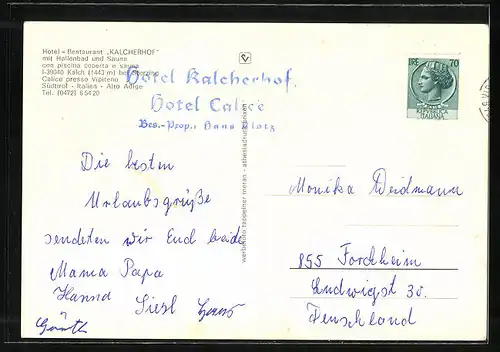 Hotel - Restaurant „KALCHERHOF"
mit Hallenbad und Sauna
con piscina coperta e sauna
I-39040 Kalch (1443 m) bei Sterzing
Calice presso Vipiteno
Südtirol - Italien - Alto Adige
Tel. (0472) 65420
Hotel Kalcherhof
Hotel Calice
Bes.-Prop.: Hans Plotz
LIRE 70
REPUBBLICA
ITALIANA
werbefoto tappeiner meran
Die besten
Urlaubsgrüße
sendeten wir Euch beide
Mama Papa
Hanna Siesl
Monika Weidmann
855 Forchheim
Ludwigst 30.
Deuschland